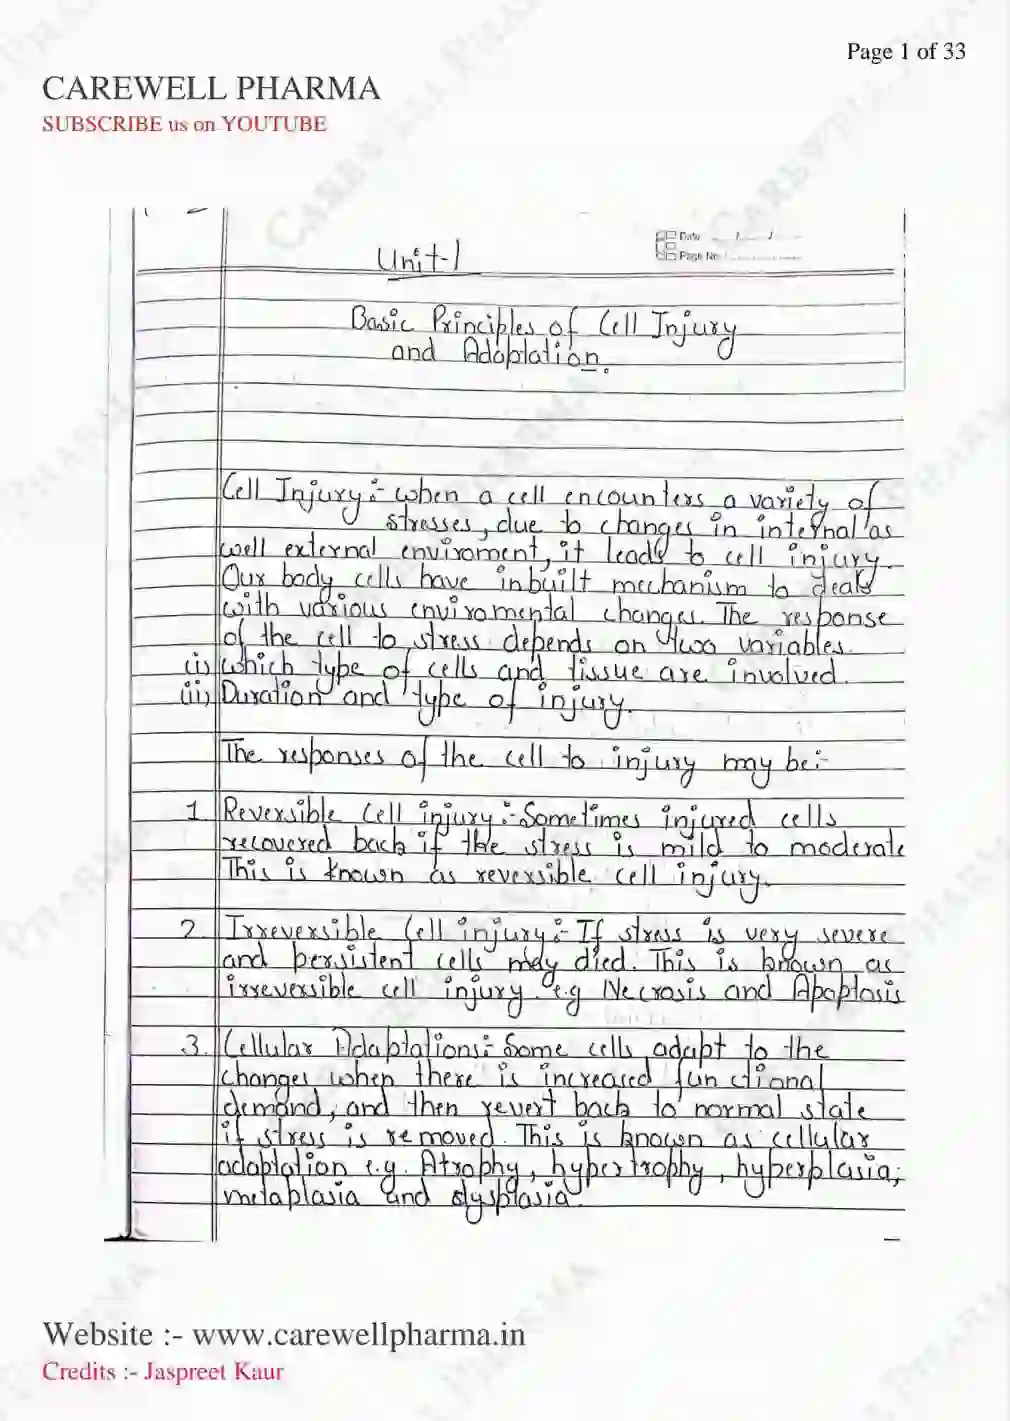 Page 1 of 33
CAREWELL PHARMA
SUBSCRIBE us on YOUTUBE
Date
Page No.
Unit-1
Basic Principles of Cell Injury
and Adaptation.
Cell Injury :- when a cell encounters a variety of
stresses, due to changes in internal as
well external enviroment, it leads to cell injury.
Our body cells have inbuilt mechanism to deals
with various enviromental changes. The response
of the cell to stress depends on two variables.
(i) which type of cells and tissue are involved.
(ii) Duration and type of injury.
The responses of the cell to injury may be:-
1. Reversible Cell injury :- Sometimes injured cells
recovered back if the stress is mild to moderate
This is known as reversible cell injury.
2. Irreversible Cell injury :- If stress is very severe
and persistent cells may died. This is known as
irreversible cell injury e.g Necrosis and Apoptosis
3. Cellular Adaptations :- Some cells adapt to the
changes when there is increased functional
demand, and then revert back to normal state
if stress is removed. This is known as cellular
adaptation e.g. Atrophy, hypertrophy, hyperplasia,
metaplasia and dysplasia.
Website :- www.carewellpharma.in
Credits :- Jaspreet Kaur